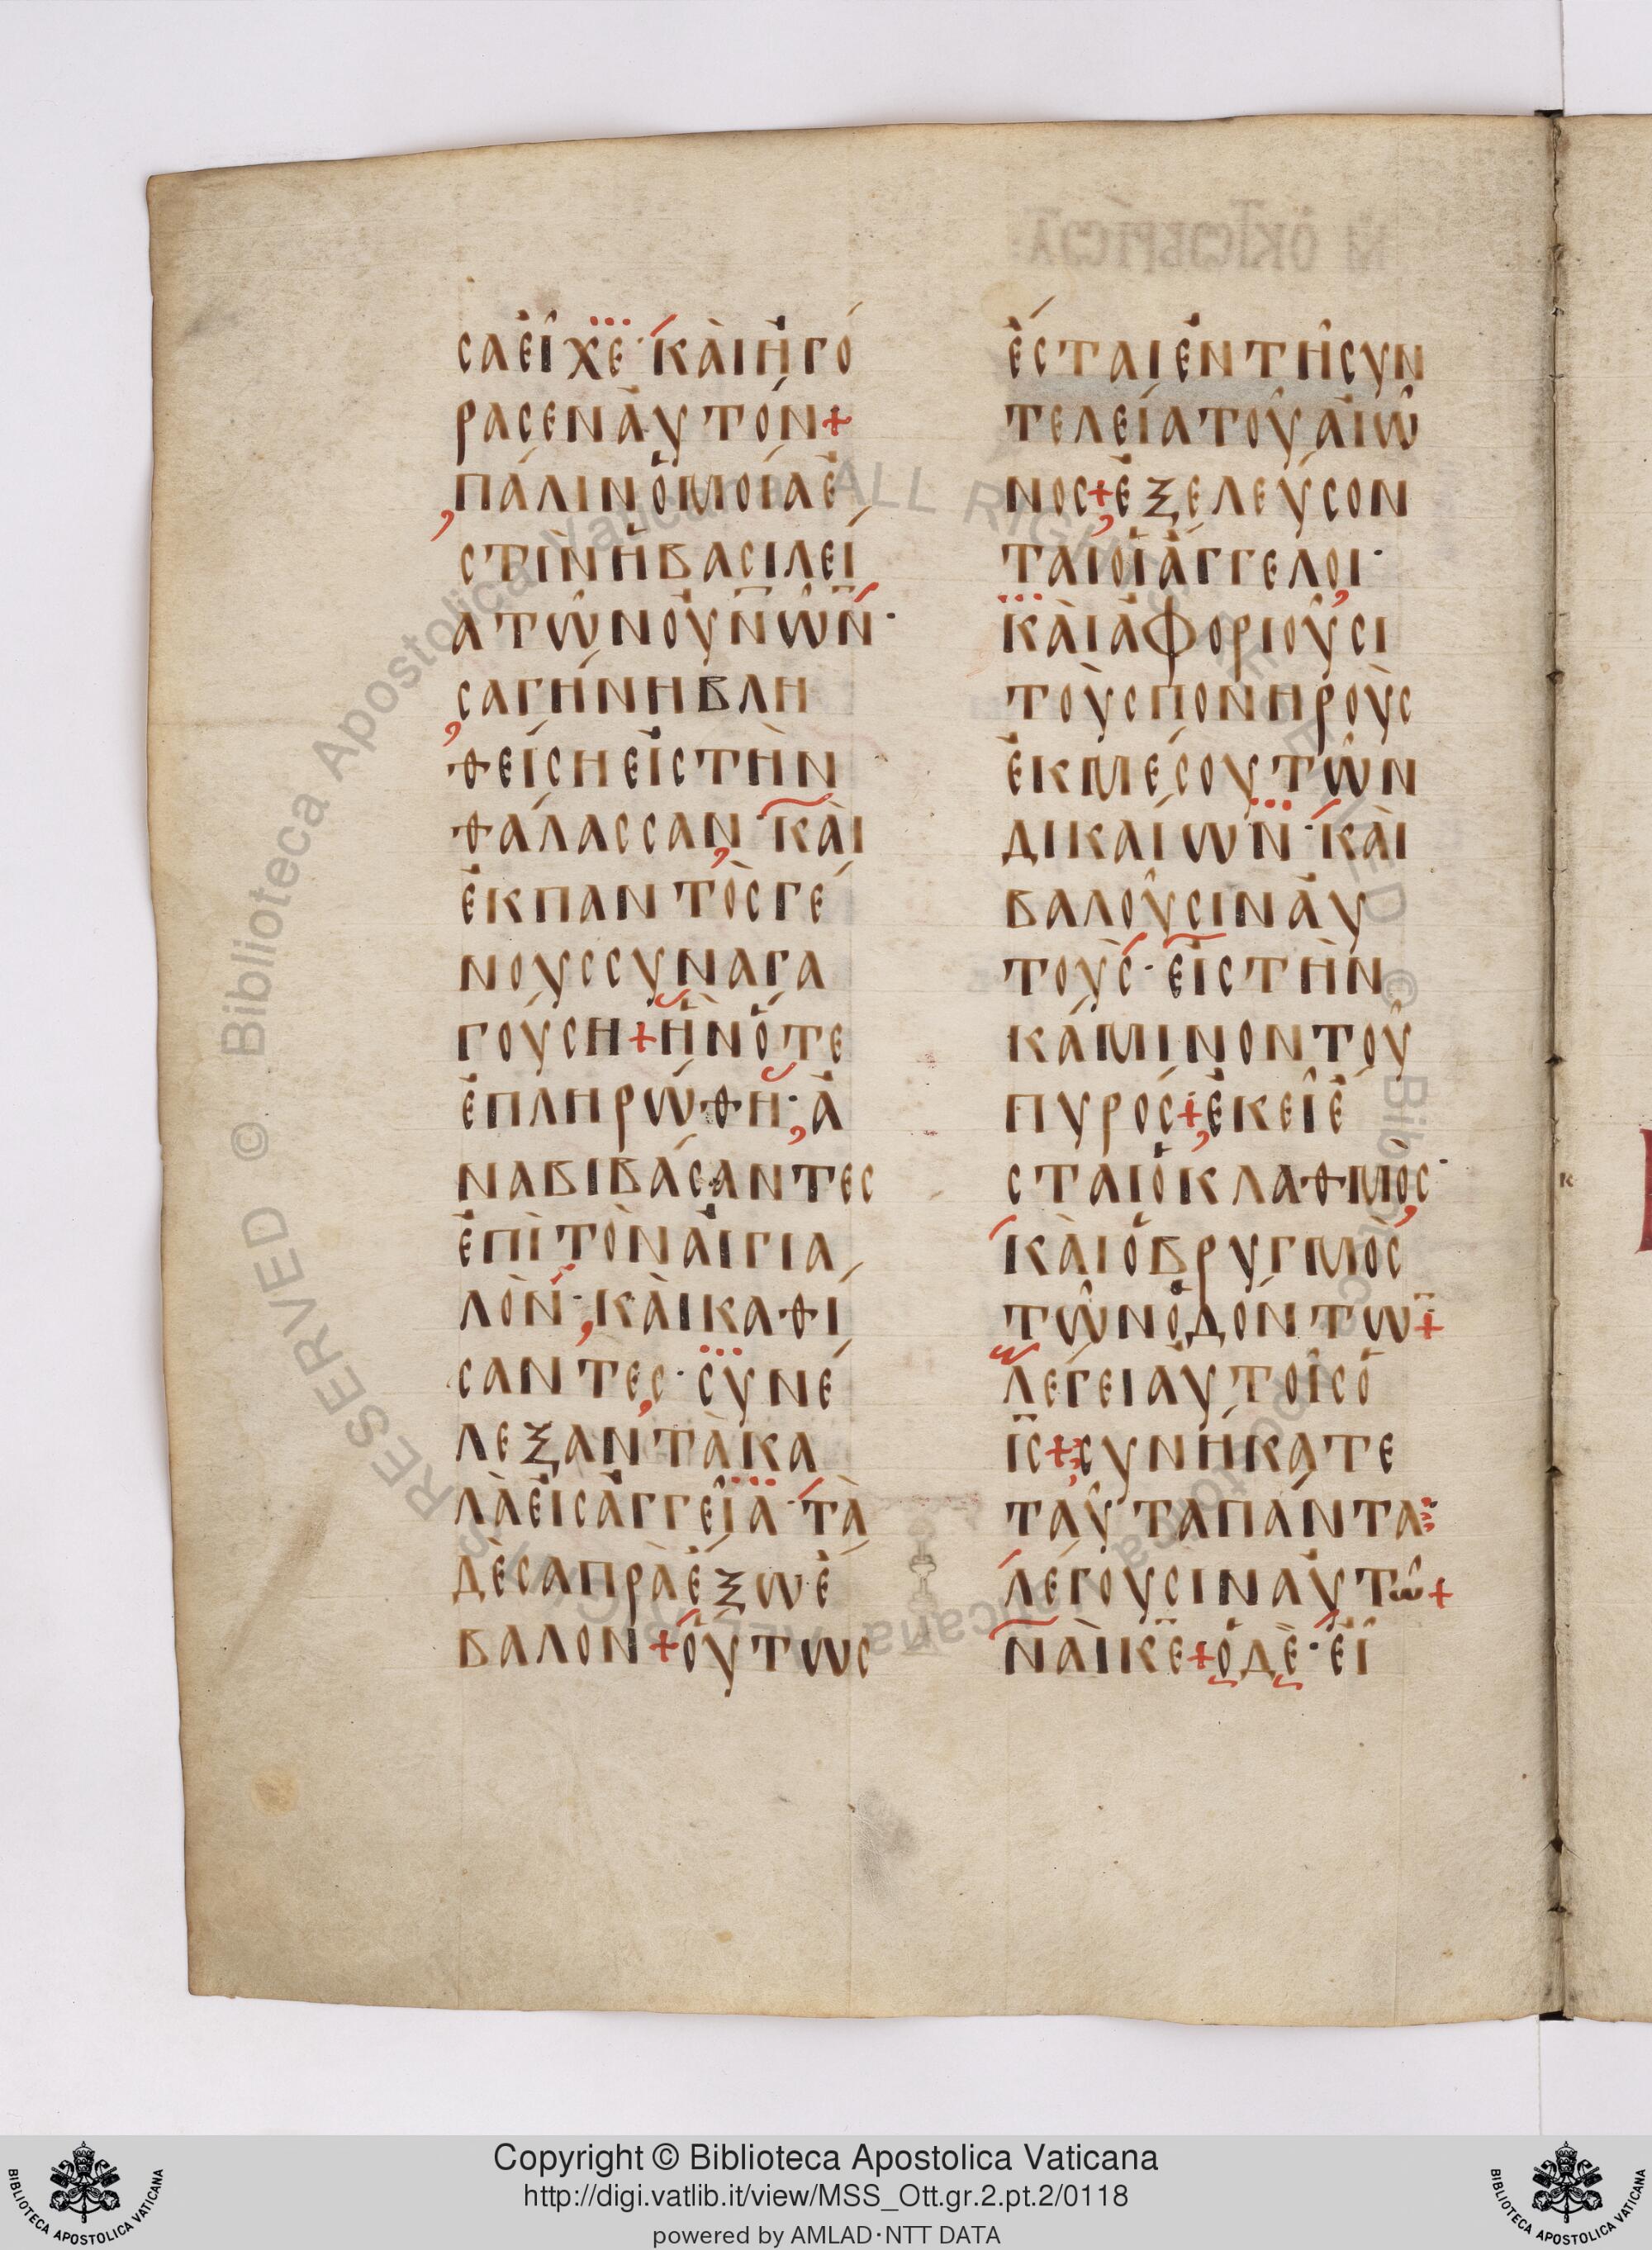 σαεἶχε· κὰιἠγό
ρασεναὐτόν+
πάλινὁμοίαἐ
στὶνἡβασιλεί
ατῶνοὐν̅ῶν̅·
σαγήνηβλη
θείσηεἰστὴν
θάλασσαν· κὰι
ἐκπαντὸςγέ
νουςσυναγα
γούση+ἣνὅτε
ἐπληρώθη· ἀ
ναβιβάσαντες
ἐπὶτὸναἰγια
λὸν· κὰικαθί
σαντες· συνέ
λεξαντὰκα
λὰεἰςἀγγεῖα· τὰ
δὲσαπρὰέξωἔ
βαλον+οὕτως
ἔσταιἐντῆσυν
τελείατοῦαἰῶ
νος+ἐξελεύσον
ταιοἱἄγγελοι·
κὰιἀφοριοῦσι
τοὺςπονηροὺς
ἐκμέσουτῶν
δικαίων· κὰι
βαλοῦσιναὐ
τοὺς· εἰςτὴν
κάμινοντοῦ
πυρός+ἐκεῖἔ
σταιὁκλαθμος·
κὰιὁβρυγμὸς
τῶνὀδόντω̅+
λέγειαὐτοῖςὁ
ι̅ς+συνήκατε
ταῦταπάντα:
λέγουσιναὐτῶ+
νὰικ̅ε̅+ὁδὲ· εἶ
Μ ὀκτωβρίω λ
Copyright © Biblioteca Apostolica Vaticana
http://digi.vatlib.it/view/MSS_Ott.gr.2.pt.2/0118
powered by AMLAD·NTT DATA
BIBLIOTECA APOSTOLICA VATICANA
BIBLIOTECA APOSTOLICA VATICANA